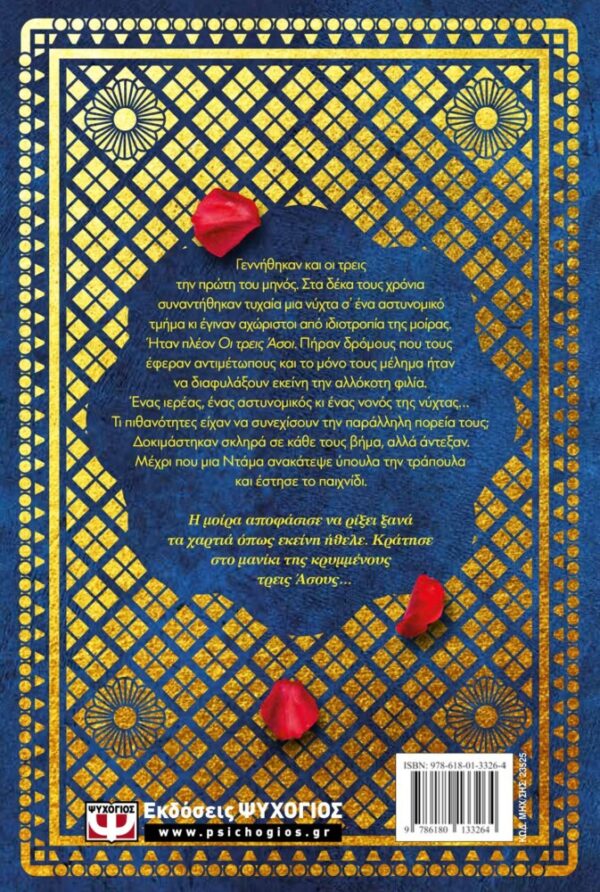 Γεννήθηκαν και οι τρεις
την πρώτη του μηνός. Στα δέκα τους χρόνια
συναντήθηκαν τυχαία μια νύχτα σ' ένα αστυνομικό
τμήμα κι έγιναν αχώριστοι από ιδιοτροπία της μοίρας.
Ήταν πλέον Οι τρεις Άσοι. Πήραν δρόμους που τους
έφεραν αντιμέτωπους και το μόνο τους μέλημα ήταν
να διαφυλάξουν εκείνη την αλλόκοτη φιλία.
Ένας ιερέας, ένας αστυνομικός κι ένας νονός της νύχτας...
Τι πιθανότητες είχαν να συνεχίσουν την παράλληλη πορεία τους;
Δοκιμάστηκαν σκληρά σε κάθε τους βήμα, αλλά άντεξαν.
Μέχρι που μια Ντάμα ανακάτεψε ύπουλα την τράπουλα
και έστησε το παιχνίδι.
Η μοίρα αποφάσισε να ρίξει ξανά
τα χαρτιά όπως εκείνη ήθελε. Κράτησε
στο μανίκι της κρυμμένους
τρεις Άσους...
ISBN: 978-618-01-3326-4
9 786180 133264
ΚΩΔ. ΜΗΧ/ΣΗΣ: 23525
ΨΥΧΟΓΙΟΣ
Εκδόσεις ΨΥΧΟΓΙΟΣ
www.psichogios.gr